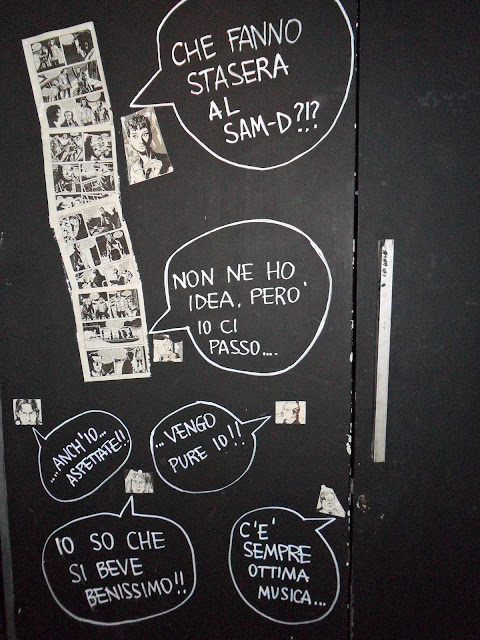 CHE FANNO
STASERA
AL
SAM-D?!?
NON NE HO
IDEA, PERO'
IO CI
PASSO...
...ANCH'IO...
ASPETTATE!!
...VENGO
PURE IO!!
IO SO CHE
SI BEVE
BENISSIMO!!
C'E'
SEMPRE
OTTIMA
MUSICA...